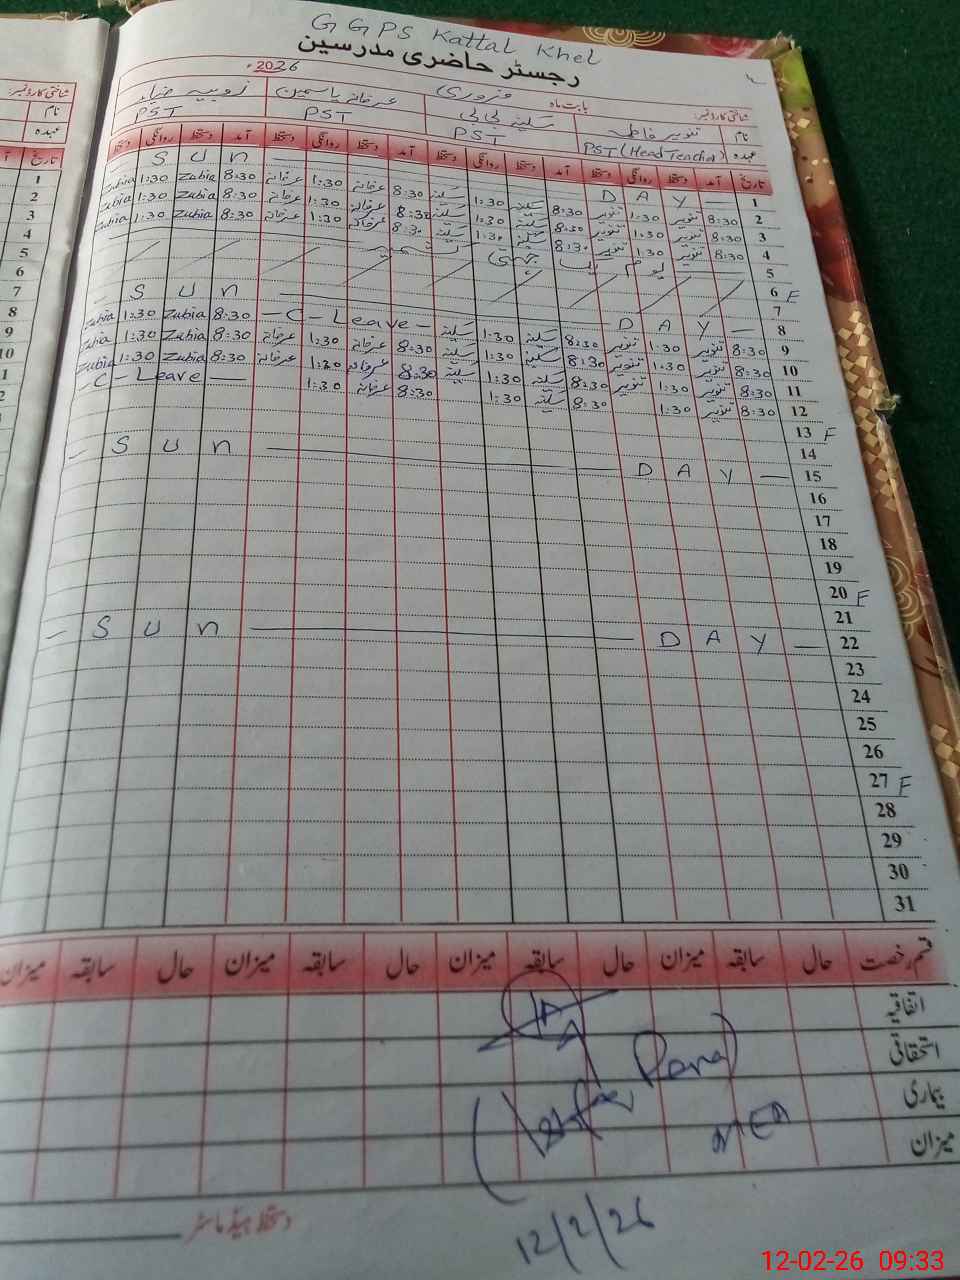 G G P S Kattal Khel
رجسٹر حاضری مدرسین
بابت ماہ فروری 2026ء
شناختی کارڈ نمبر:
نام تنویر فاطمہ سکینہ بی بی عرفانہ یاسمین زوبیہ ضیاء
عہدہ PST (Head Teacher) PST PST PST
تاریخ آمد دستخط روانگی دستخط آمد دستخط روانگی دستخط آمد دستخط روانگی دستخط آمد دستخط روانگی دستخط
1 — S U N — D A Y —
2 8:30 تنویر 1:30 تنویر 8:30 سکینہ 1:30 سکینہ 8:30 عرفانہ 1:30 عرفانہ 8:30 Zubia 1:30 Zubia
3 8:30 تنویر 1:30 تنویر 8:30 سکینہ 1:30 سکینہ 8:30 عرفانہ 1:30 عرفانہ 8:30 Zubia 1:30 Zubia
4 8:30 تنویر 1:30 تنویر 8:30 سکینہ 1:30 سکینہ 8:30 عرفانہ 1:30 عرفانہ 8:30 Zubia 1:30 Zubia
5 یوم یکجہتی کشمیر
6 F
7
8 — S U N — D A Y —
9 8:30 تنویر 1:30 تنویر 8:30 سکینہ 1:30 سکینہ — C - Leave — 8:30 Zubia 1:30 Zubia
10 8:30 تنویر 1:30 تنویر 8:30 سکینہ 1:30 سکینہ 8:30 عرفانہ 1:30 عرفانہ 8:30 Zubia 1:30 Zubia
11 8:30 تنویر 1:30 تنویر 8:30 سکینہ 1:30 سکینہ 8:30 عرفانہ 1:30 عرفانہ 8:30 Zubia 1:30 Zubia
12 8:30 تنویر 1:30 8:30 سکینہ 1:30 8:30 عرفانہ 1:30 — C - Leave —
13 F
14
15 — S U N — D A Y —
16
17
18
19
20 F
21
22 — S U N — D A Y —
23
24
25
26
27 F
28
29
30
31
قسم رخصت حال سابقہ میزان حال سابقہ میزان حال سابقہ میزان حال سابقہ میزان
اتفاقیہ
استحقاقی
بیماری
میزان
MEA
12/2/26
دستخط ہیڈ ماسٹر
شناختی کارڈ نمبر:
نام
عہدہ
تاریخ
1
2
3
4
5
6
7
8
9
10
12-02-26 09:33